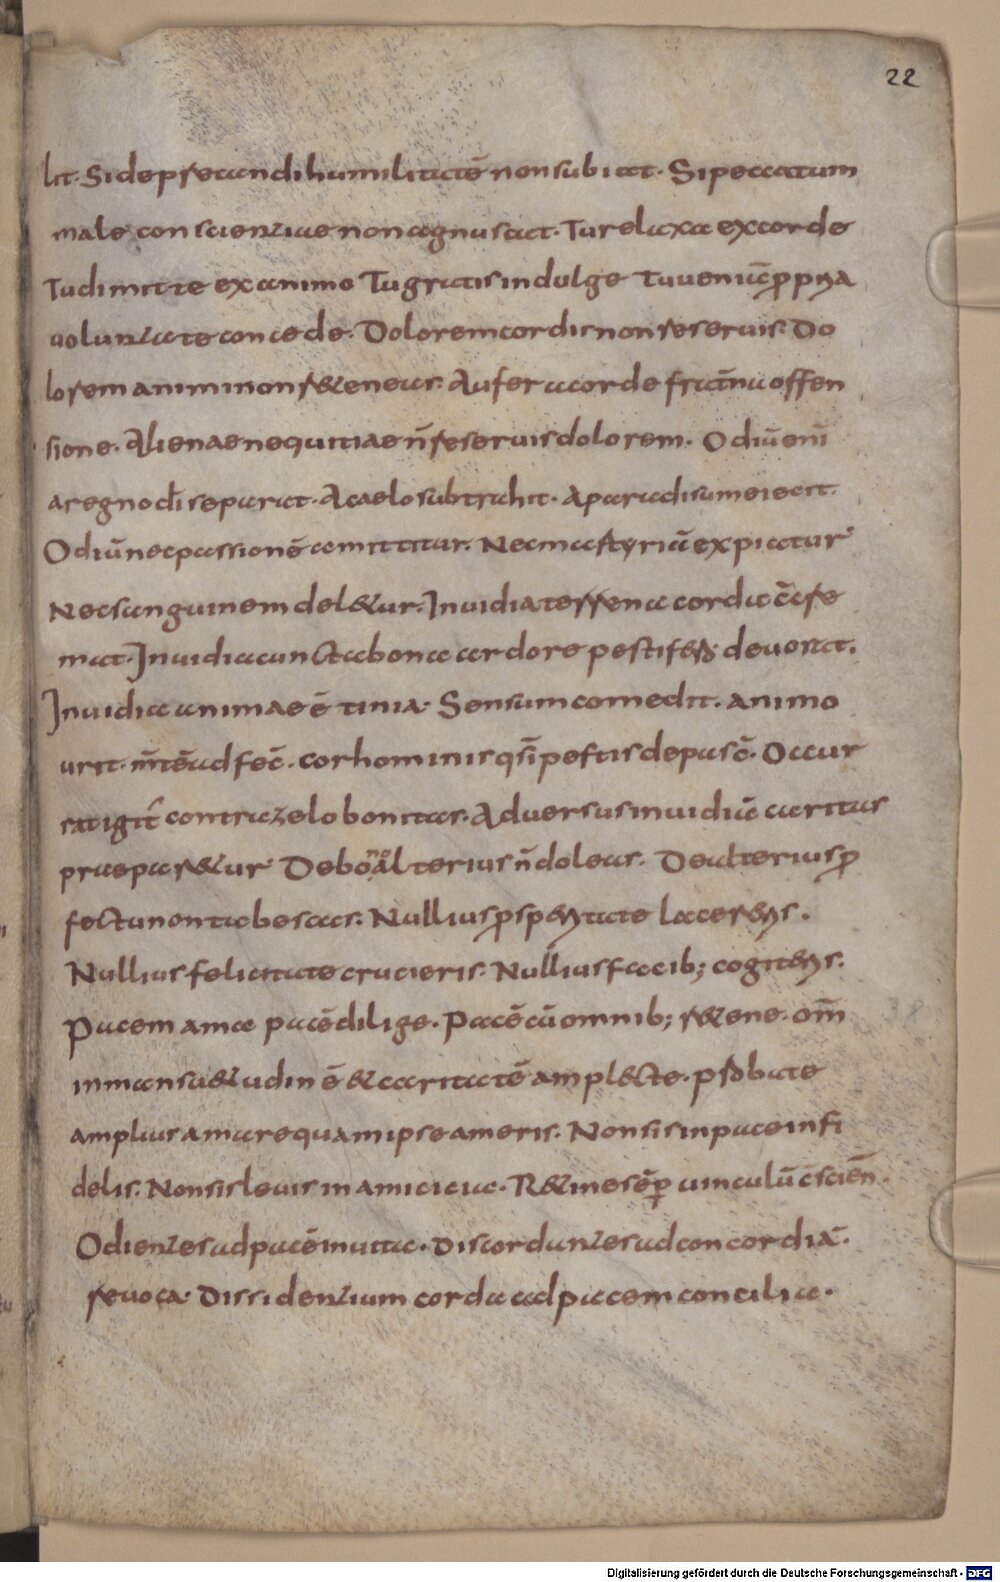 22
lit. Si deprecandi humilitatē non subiat. Si peccatum
male conscientiae non agnuscat. Tu relaxa ex corde
Tu dimitte ex animo Tu gratis indulge Tu veniā ppria
voluntate concede. Dolorem cordis non reservis. Do
lorem animi non ret&eneas. Aufer a corde fratnā offen
sione. Alienae nequitiae n̄ reservis dolorem. Odiū eni
a regno dī separat. A caelo subtrahit. A paradisum eiecit.
Odiū nec passionē amittitur. Nec martyriā expiatur
Nec sanguinem del&ur. Invidia terrena corda
mat. Invidia cuncta bona ardore pestifero devorat.
Invidia animae ē tinia. Sensum comedit. animo
urit. mtē adfeč. cor hominis qsi peftis depasč. Occur
rat igit̄ contra zelo bonitas. Adversus invidiā caritas
praepar&ur De bono alterius n̄ doleas. De alterius p
fectu non tabescas. Nullius psperitate lacereris.
Nullius felicitate crucieris. Nullius facib; cogiteris.
Pacem ama pacē dilige. Pacē cū omnib; r&ene. om̄
in mansu&udinē & caritatē ampl&cte. probate
amplius amare quam ipse ameris. Non sis in pace infi
delis. Non sis levis in amicicia. R&ine sēp vinculū čscien̄.
Odientes ad pacē invita. Discordantes ad concordiā.
revoca. Dissidentium corda ad pacem concilia.
Digitalisierung gefördert durch die Deutsche Forschungsgemeinschaft - DFG